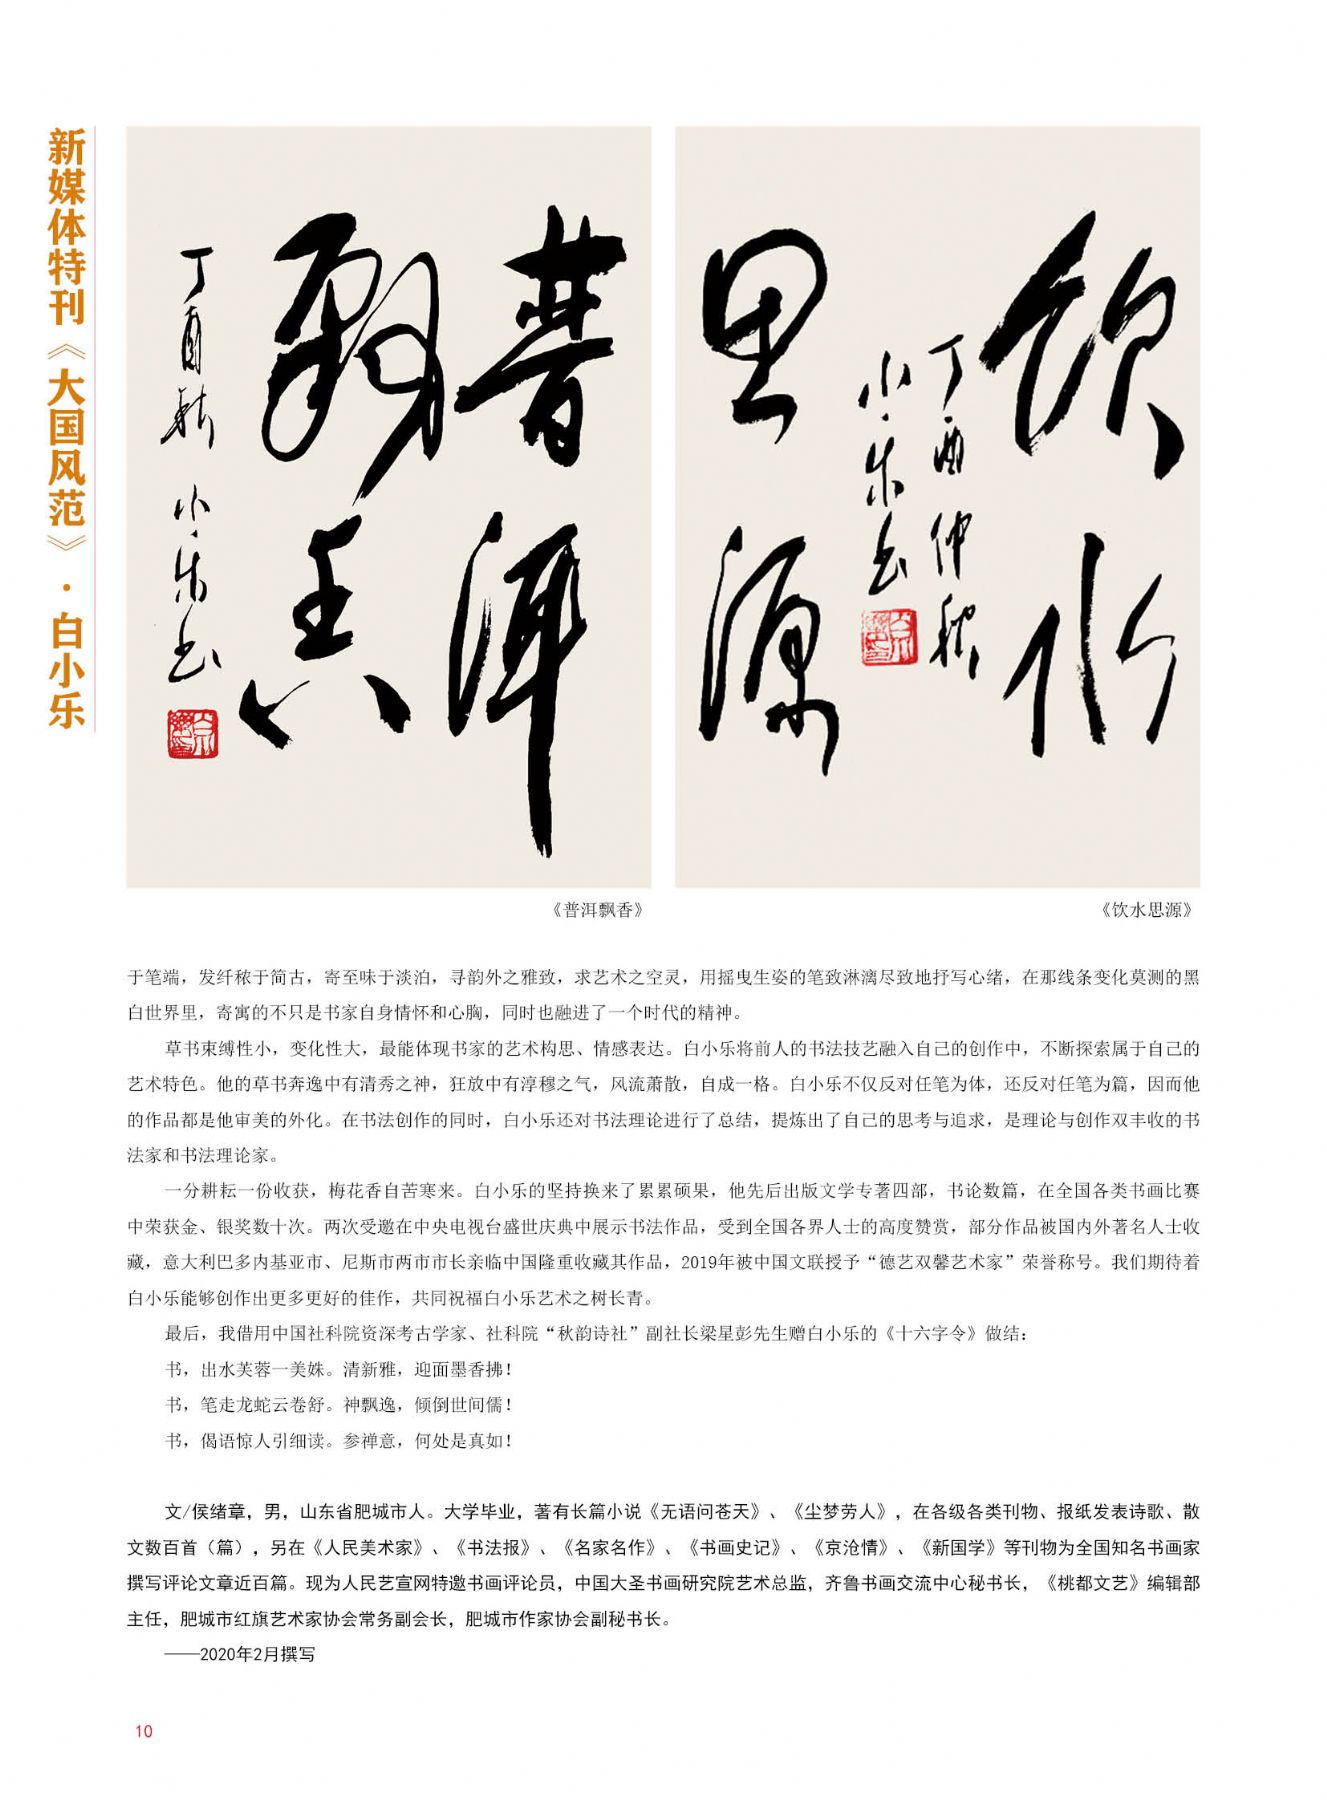 新媒体特刊《大国风范》·白小乐
普洱
飘香
丁酉秋 小乐书
饮水
思源
丁酉仲秋
小乐书
《普洱飘香》
《饮水思源》
于笔端，发纤秾于简古，寄至味于淡泊，寻韵外之雅致，求艺术之空灵，用摇曳生姿的笔致淋漓尽致地抒写心绪，在那线条变化莫测的黑
白世界里，寄寓的不只是书家自身情怀和心胸，同时也融进了一个时代的精神。
草书束缚性小，变化性大，最能体现书家的艺术构思、情感表达。白小乐将前人的书法技艺融入自己的创作中，不断探索属于自己的
艺术特色。他的草书奔逸中有清秀之神，狂放中有淳穆之气，风流萧散，自成一格。白小乐不仅反对任笔为体，还反对任笔为篇，因而他
的作品都是他审美的外化。在书法创作的同时，白小乐还对书法理论进行了总结，提炼出了自己的思考与追求，是理论与创作双丰收的书
法家和书法理论家。
一分耕耘一份收获，梅花香自苦寒来。白小乐的坚持换来了累累硕果，他先后出版文学专著四部，书论数篇，在全国各类书画比赛
中荣获金、银奖数十次。两次受邀在中央电视台盛世庆典中展示书法作品，受到全国各界人士的高度赞赏，部分作品被国内外著名人士收
藏，意大利巴多内基亚市、尼斯市两市市长亲临中国隆重收藏其作品，2019年被中国文联授予“德艺双馨艺术家”荣誉称号。我们期待着
白小乐能够创作出更多更好的佳作，共同祝福白小乐艺术之树长青。
最后，我借用中国社科院资深考古学家、社科院“秋韵诗社”副社长梁星彭先生赠白小乐的《十六字令》做结：
书，出水芙蓉一美姝。清新雅，迎面墨香拂！
书，笔走龙蛇云卷舒。神飘逸，倾倒世间儒！
书，偈语惊人引细读。参禅意，何处是真如！
文/侯绪章，男，山东省肥城市人。大学毕业，著有长篇小说《无语问苍天》、《尘梦劳人》，在各级各类刊物、报纸发表诗歌、散
文数百首（篇），另在《人民美术家》、《书法报》、《名家名作》、《书画史记》、《京沧情》、《新国学》等刊物为全国知名书画家
撰写评论文章近百篇。现为人民艺宣网特邀书画评论员，中国大圣书画研究院艺术总监，齐鲁书画交流中心秘书长，《桃都文艺》编辑部
主任，肥城市红旗艺术家协会常务副会长，肥城市作家协会副秘书长。
——2020年2月撰写
10